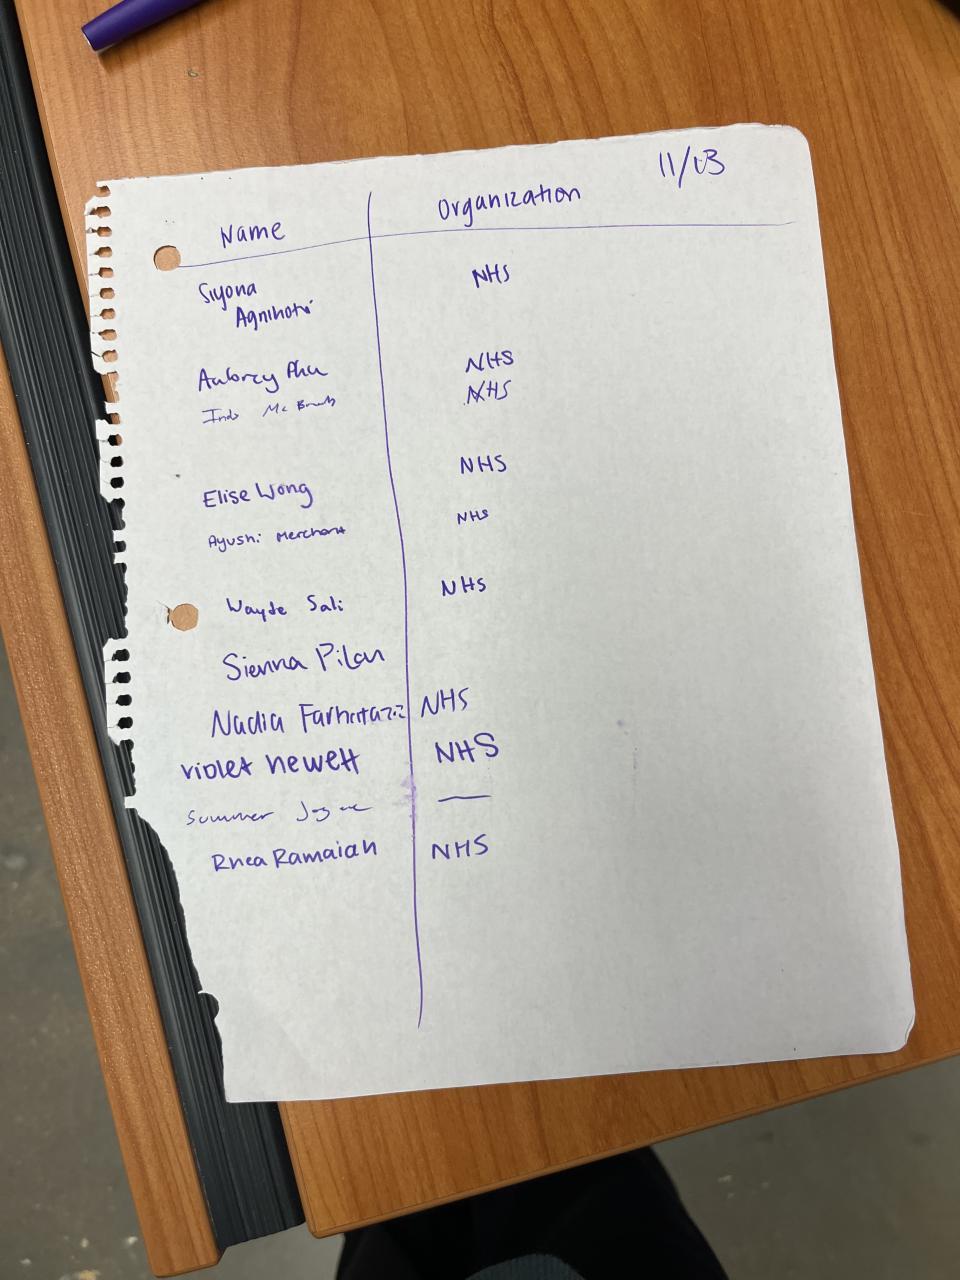 11/03
Name Organization
Siyona NHS
Agnihotri
Aubrey Phu NHS
Mc NHS
Elise Wong NHS
Ayushi Merchant NHS
Wayde Sali NHS
Sienna Pilan
Nadia NHS
violet hewett NHS
Summer —
Rhea Ramaiah NHS